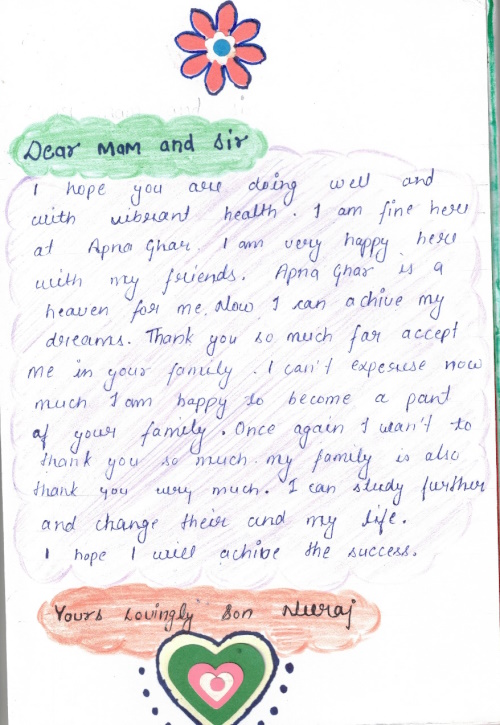 Dear Mam and Sir
I hope you are doing well and
with vibrant health. I am fine here
at Apna Ghar. I am very happy here
with my friends. Apna Ghar is a
heaven for me. Now I can achive my
dreams. Thank you so much far accept
me in your family. I can't experese now
much I am happy to become a part
of your family. Once again I wan't to
thank you so much. my family is also
thank you very much. I can study further
and change their and my life.
I hope I will achive the success.
Yours Lovingly Son Neeraj